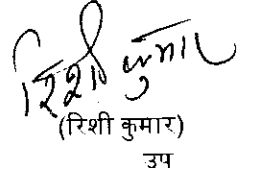 रिशी कुमार
(रिशी कुमार)
उप